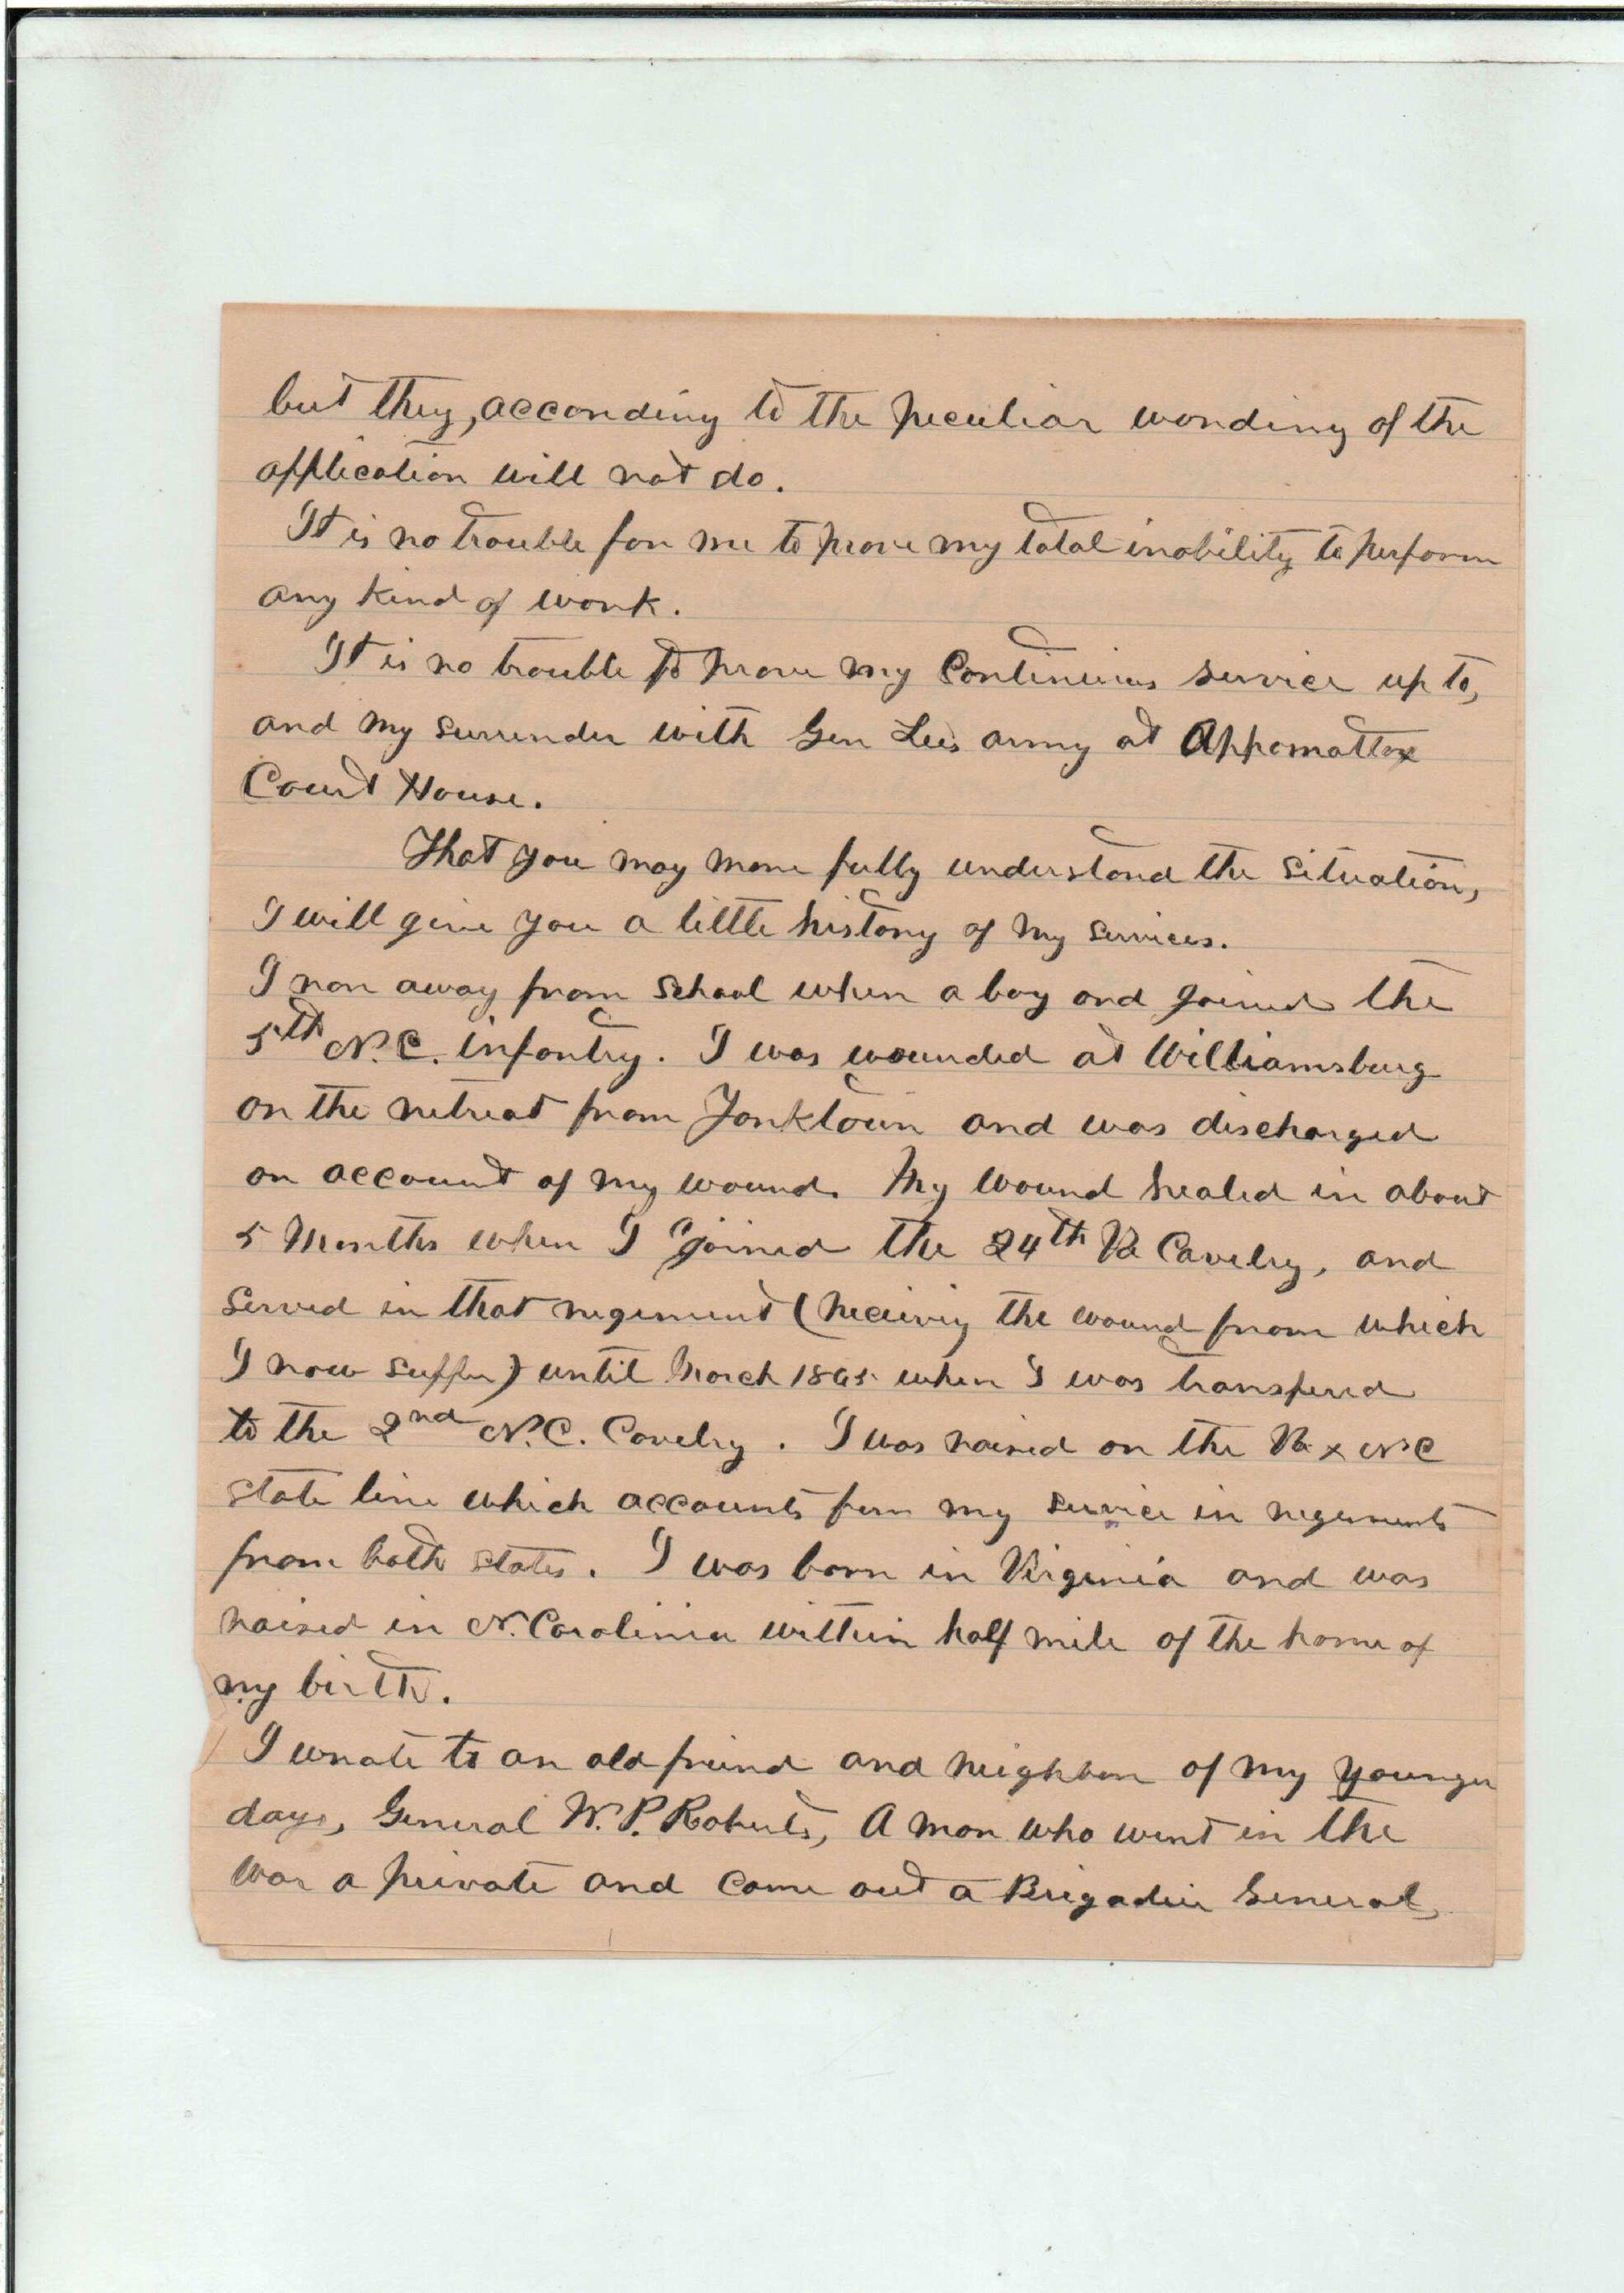 but they, according to the peculiar wording of the
application will not do.
It is no trouble for me to prove my total inability to perform
any kind of work.
It is no trouble to prove my Continuous service up to,
and my surrender with Gen Lees army at Appomattox
Court House.
That you may more fully understand the situation,
I will give you a little history of my services.
I ran away from school when a boy and joined the
5th N.C. infantry. I was wounded at Williamsburg
on the retreat from Yorktown and was discharged
on account of my wound. My wound healed in about
5 Months when I joined the 24th Va Cavelry, and
Served in that regiment (receivig the wound from which
I now suffer) until March 1865 when I was transfered
to the 2nd N.C. Cavelry. I was raised on the Va & N C
state line which accounts for my service in regiments
from both states. I was born in Virginia and was
raised in N. Carolinia within half mile of the home of
my birth.
I wrote to an old friend and neighbor of my younger
days, General W. P. Roberts, A man who went in the
war a private and came out a Brigadier General,